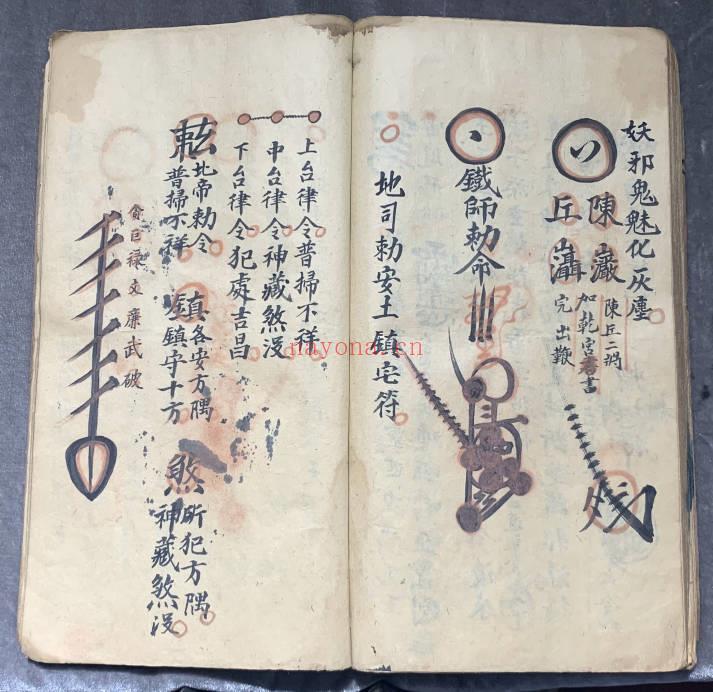 妖邪鬼魅化灰塵
陳
丘
陳丘二將
加乾宮書
完出鞭
鐵師勅命
地司勅安土鎮宅符
上台律令普掃不祥
中台律令神藏煞没
下台律令犯處吉昌
北帝勅令
普掃不祥
鎮
各安方隅
鎮守十方
煞
所犯方隅
神藏煞没
貪巨禄文廉武破
nayona.cn